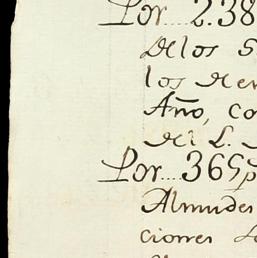 Por....2.38
de los S
los de en
Año, co
del L.
Por...365p
Almudes
ciones